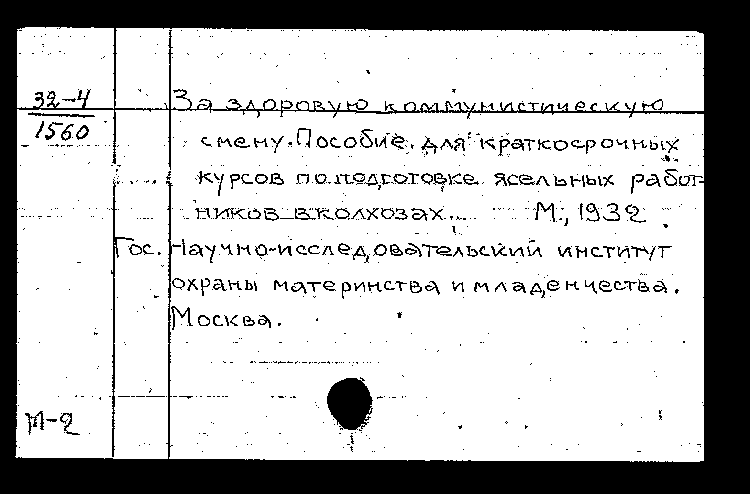 32-4
1560
За здоровую коммунистическую
смену. Пособие для краткосрочных
курсов по подготовке ясельных работ-
ников в колхозах. М., 1932.
Гос. Научно-исследовательский институт
охраны материнства и младенчества.
Москва.
М-2